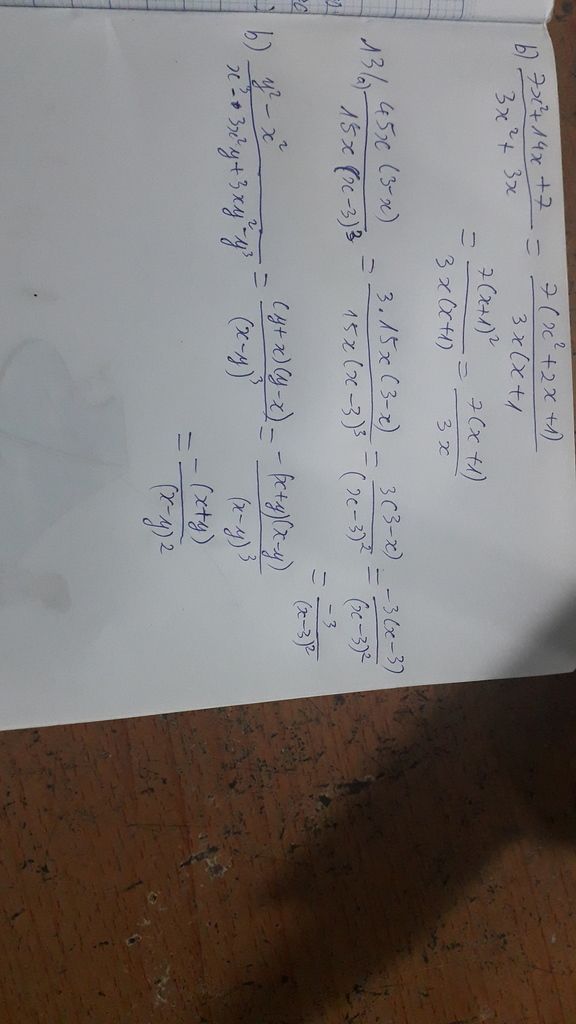 b) (7x²+14x+7)/(3x²+3x) = 7(x²+2x+1)/3x(x+1
= 7(x+1)²/3x(x+1) = 7(x+1)/3x
13/a) 45x(3-x)/15x(x-3)³ = 3.15x(3-x)/15x(x-3)³ = 3(3-x)/(x-3)³ = -3(x-3)/(x-3)²
= -3/(x-3)²
b) (y²-x²)/(x³-3x²y+3xy²-y³) = (y+x)(y-x)/(x-y)³ = -(x+y)(x-y)/(x-y)³
= -(x+y)/(x-y)²